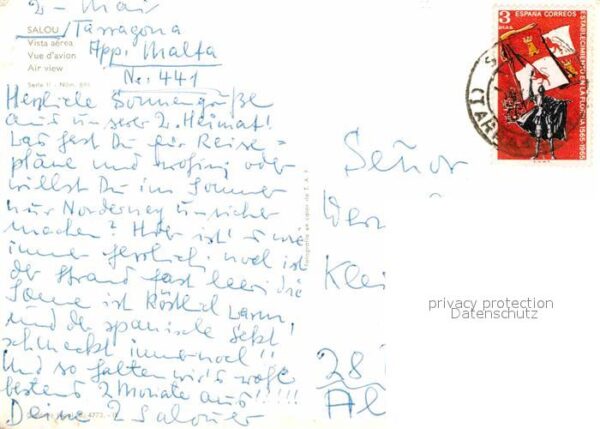 2 - Mai
SALOU/Tarragona
Vista aérea
Vue d'avion App. Malta
Air view
Serie II - Núm. Nr. 441
Herzliche Sonnengrüße
aus unserer 2. Heimat!
Was hast Du für Reise=
pläne und wohin oder
willst Du im Sommer
nur Norderney unsicher
machen? Hier ist's wie
immer herrlich noch ist
der Strand fast leer die
Sonne ist köstlich warm,
und der spanische Sekt
schmeckt immer noch!!
Und so halten wir's wohl
bestens 2 Monate aus!!!!
Deine 2 Salouer
Señor
Wer
Klei
28
Al
3 PTAS
ESPAÑA CORREOS
ESTABLECIMIENTO EN LA FLORIDA 1565-1965
(TAR
privacy protection
Datenschutz